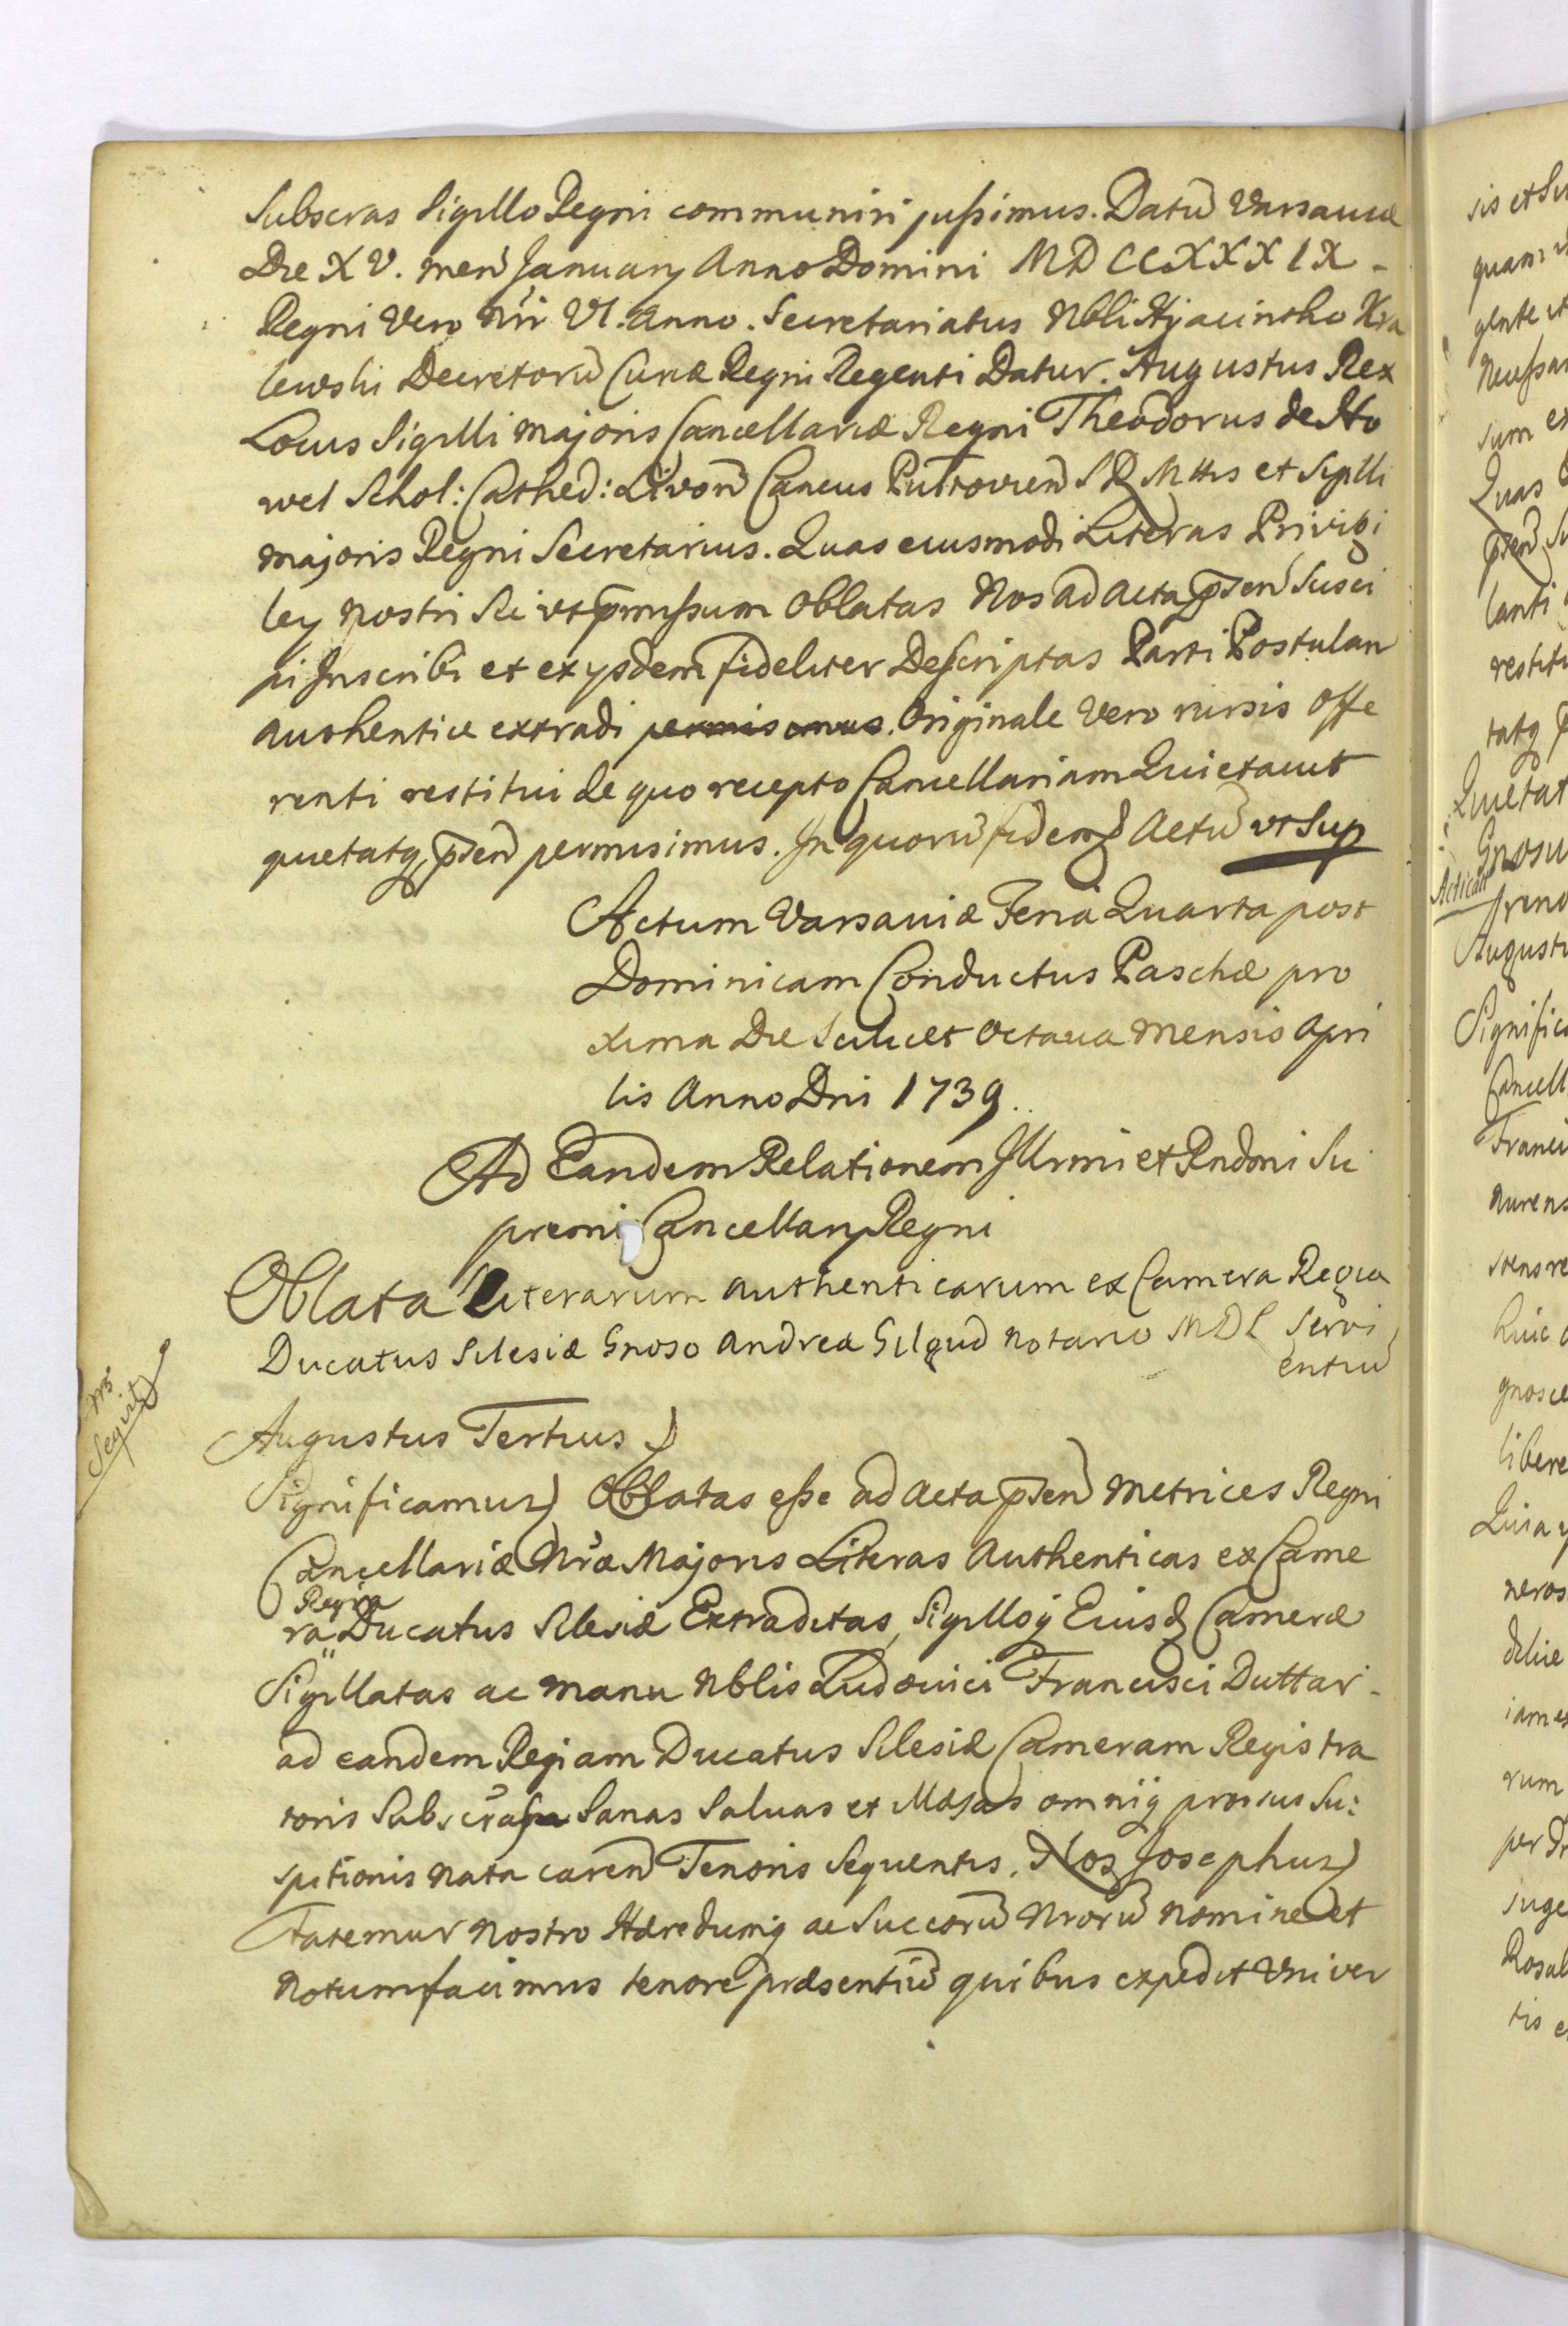 Subscras Sigillo Regni communiri jussimus. Datũ Varsaviæ
Die XV. menẽ January Anno Domini MDCCXXXIX -
Regni Vero Nri VI. Anno. Secretariatus Nbli Hyacintho Kra
lewski Decretorũ Curiæ Regni Regenti Datur. Augustus Rex
Locus Sigilli majoris Cancellariæ Regni Theodorus de Ho
wel Schol: Cathed: Livoñ Cancus SRMttis et Sigilli
majoris Regni Secretarius. Quas eiusmodi Literas Privigi
ley nostri Sic ut pmissum Oblatas Nos ad Acta pseñ Susci
pi Inscribi et ex ysdem fideliter Descriptas Parti Postulan
authentice extradi permisimus. Originale Vero rursis Offe
renti restitui de quo recepto Cancellariam Quietavit
quietatq pseñ permisimus. In quorũ fidem Actũ ut Sup
Actum Varsaviæ Feria Quarta post
Dominicam Conductus Paschæ pro
xima Die Scilicet Octava Mensis Apri
lis Anno Dni 1739.
Ad Eandem Relationem Illrmi et Rndmi Su
premi Cancellary Regni
Oblata Literarum authenticarum ex Camera Regia
Ducatus Silesiæ Gnoso Andreæ Gilgud Notario MDL Servi
entiũ
Augustus Tertius
Significamus Oblatas esse ad Acta pseñ Metrices Regni
Cancellariæ Nræ Majoris Literas Authenticas ex Came
Regia
ra Ducatus Silesiæ Extraditas, Sigilloq Eiusd Cameræ
Sigillatas ac manu Nblis Ludovici Francisci Duttar -
ad eandem Regiam Ducatus Silesiæ Cameram Registra
toris Sanas Salvas et Illæsas omniq prorsus Su:
spitionis nota careñ Tenoris Sequentis. Nos Josephus
Fatemur Nostro Hæredumq ac Succorũ Nrorũ nomine et
Notum facimus tenore præsentiũ quibus expedit Univer